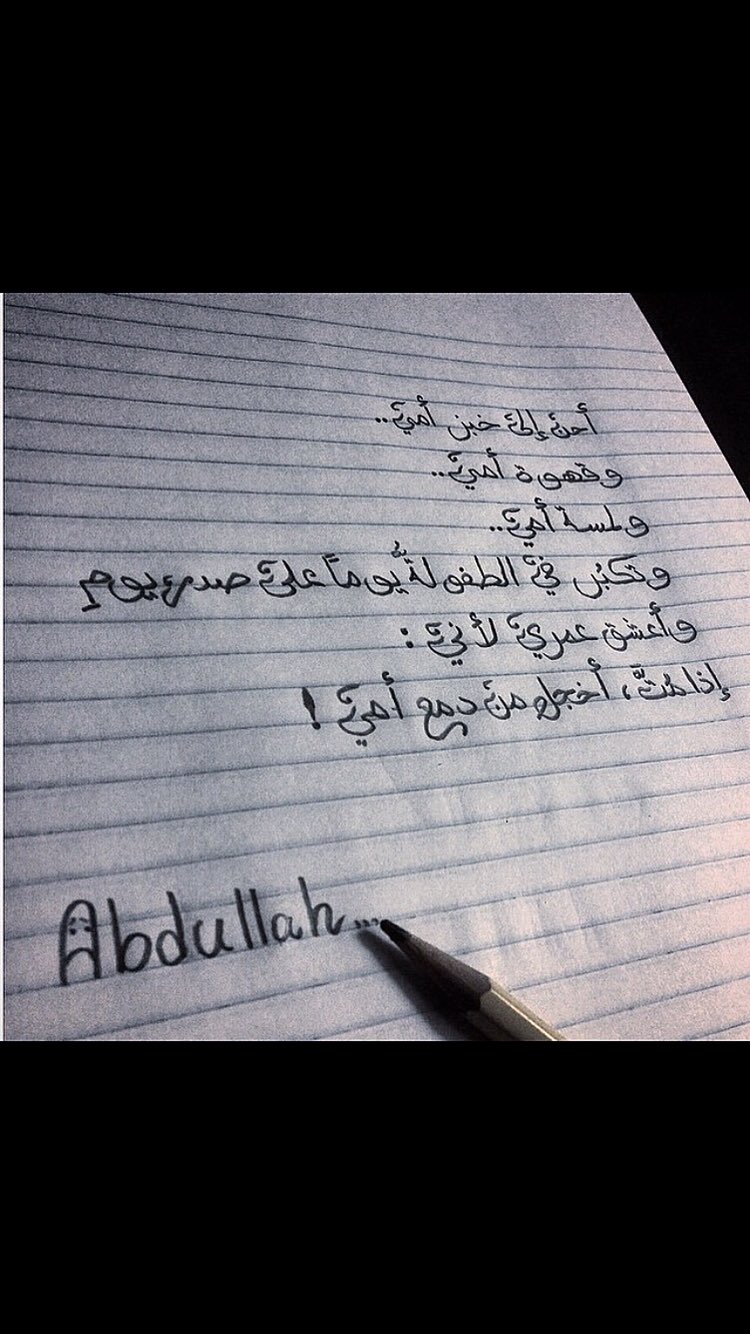 أحنّ إلى خبز أمي..
وقهوة أمي..
ولمسة أمي..
وتكبُر في الطفولةُ يوماً على صدر يوم
وأعشق عمري لأني :
إذا مُتّ، أخجل من دمع أمي !
Abdullah...